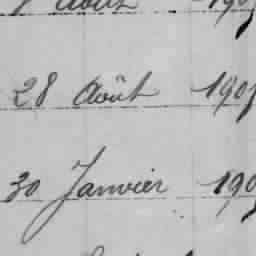 Août
28 Août 190
30 Janvier 190